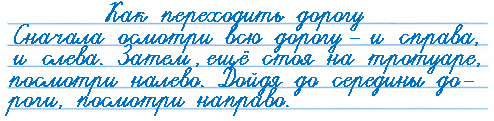 Как переходить дорогу
Сначала осмотри всю дорогу – и справа,
и слева. Затем, ещё стоя на тротуаре,
посмотри налево. Дойдя до середины до-
роги, посмотри направо.